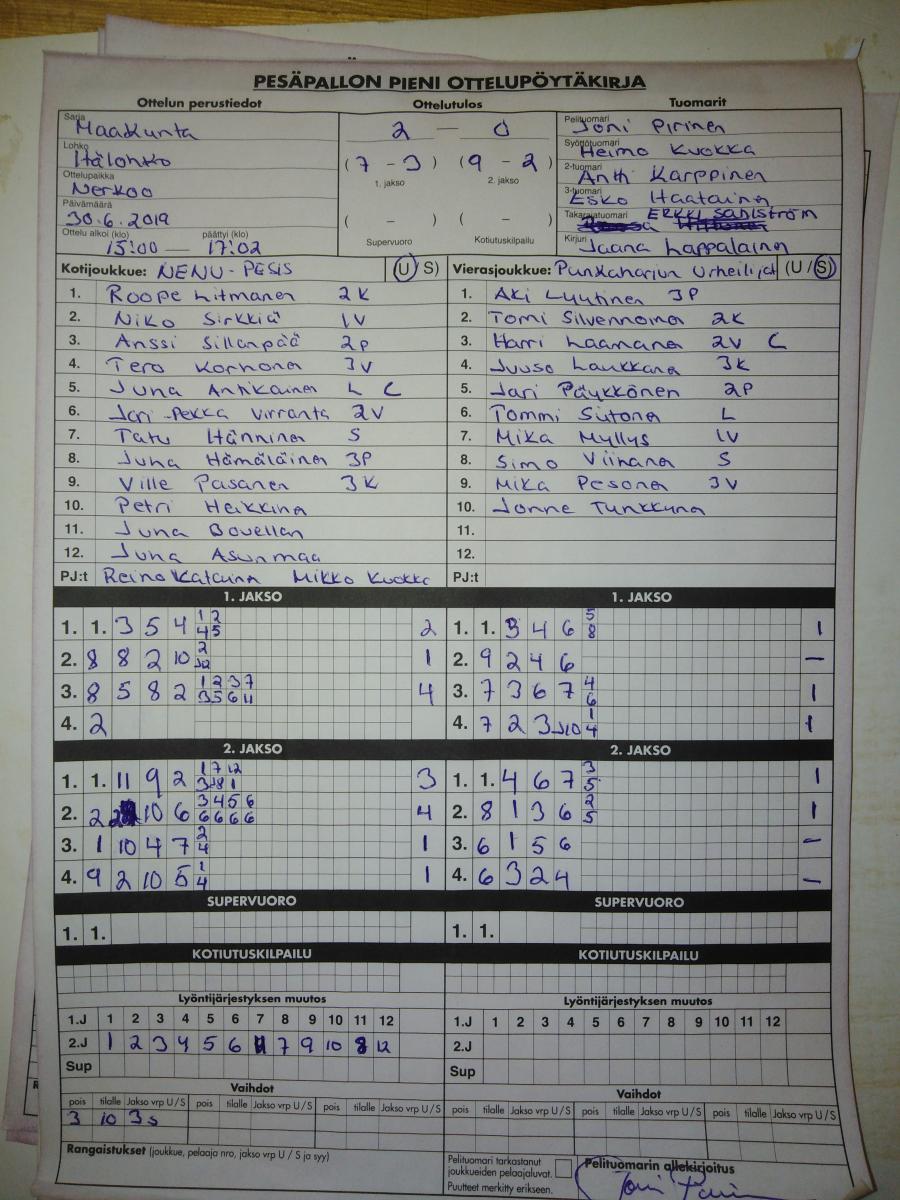 PESÄPALLON PIENI OTTELUPÖYTÄKIRJA
Ottelun perustiedot Ottelutulos Tuomarit
Sarja Maakunta
Lohko Itälohko
Ottelupaikka Nerkoo
Päivämäärä 30.6.2019
Ottelu alkoi (klo) päättyi (klo)
15:00 — 17:02
2 — 0
(7 - 3) (9 - 2)
1. jakso 2. jakso
( - ) ( - )
Supervuoro Kotiutuskilpailu
Pelituomari Joni Pirinen
Syöttötuomari Heimo Kuokka
2-tuomari Antti Karppinen
3-tuomari Esko Haatainen
Takarajatuomari Erkki Sahlström
Kirjuri Jaana Lappalainen
Kotijoukkue: NENU-PESIS (U/S) Vierasjoukkue: Punkaharjun Urheilijat (U/S)
1. Roope Litmanen 2K
2. Niko Sirkkiä 1V
3. Anssi Sillanpää 2P
4. Tero Korhonen 3V
5. Juha Antikainen L C
6. Jari-Pekka Virranta 2V
7. Tatu Hänninen S
8. Juha Hämäläinen 3P
9. Ville Pasanen 3K
10. Petri Heikkinen
11. Juha Bovellan
12. Juha Asunmaa
PJ:t Reino Katainen Mikko Kuokka
1. Aki Lyytinen 3P
2. Tomi Silvennoinen 2K
3. Harri Laamanen 2V C
4. Juuso Laukkanen 3K
5. Jari Päykkönen 2P
6. Tommi Sutonen L
7. Mika Myllys 1V
8. Simo Viinanen S
9. Mika Pesonen 3V
10. Jonne Tynkkynen
11.
12.
PJ:t
1. JAKSO 1. JAKSO
1. 1. 3 5 4 1 2 2
4 5
2. 8 8 2 10 2 1
3. 8 5 8 2 1 2 3 7 4
3 5 6 11
4. 2
1. 1. 3 4 6 5 1
8
2. 9 2 4 6 —
3. 7 3 6 7 4 1
6
4. 7 2 3 10 1 1
4
2. JAKSO 2. JAKSO
1. 1. 11 9 2 1 7 12 3
2. 2 10 6 3 4 5 6 4
6 6 6 6
3. 1 10 4 7 2 1
4
4. 9 2 10 5 1 1
4
1. 1. 4 6 7 3 1
5
2. 8 1 3 6 2 1
5
3. 6 1 5 6 —
4. 6 3 2 4 —
SUPERVUORO SUPERVUORO
1. 1. 1. 1.
KOTIUTUSKILPAILU KOTIUTUSKILPAILU
Lyöntijärjestyksen muutos Lyöntijärjestyksen muutos
1.J 1 2 3 4 5 6 7 8 9 10 11 12 1.J 1 2 3 4 5 6 7 8 9 10 11 12
2.J 1 2 3 4 5 6 11 7 9 10 8 12 2.J
Sup Sup
Vaihdot Vaihdot
pois tilalle Jakso vrp U/S pois tilalle Jakso vrp U/S pois tilalle Jakso vrp U/S pois tilalle Jakso vrp U/S pois tilalle Jakso vrp U/S pois tilalle Jakso vrp U/S
3 10 3s
Rangaistukset (joukkue, pelaaja nro, jakso vrp U / S ja syy)
Pelituomari tarkastanut
joukkueiden pelaajaluvat.
Puutteet merkitty erikseen.
Pelituomarin allekirjoitus